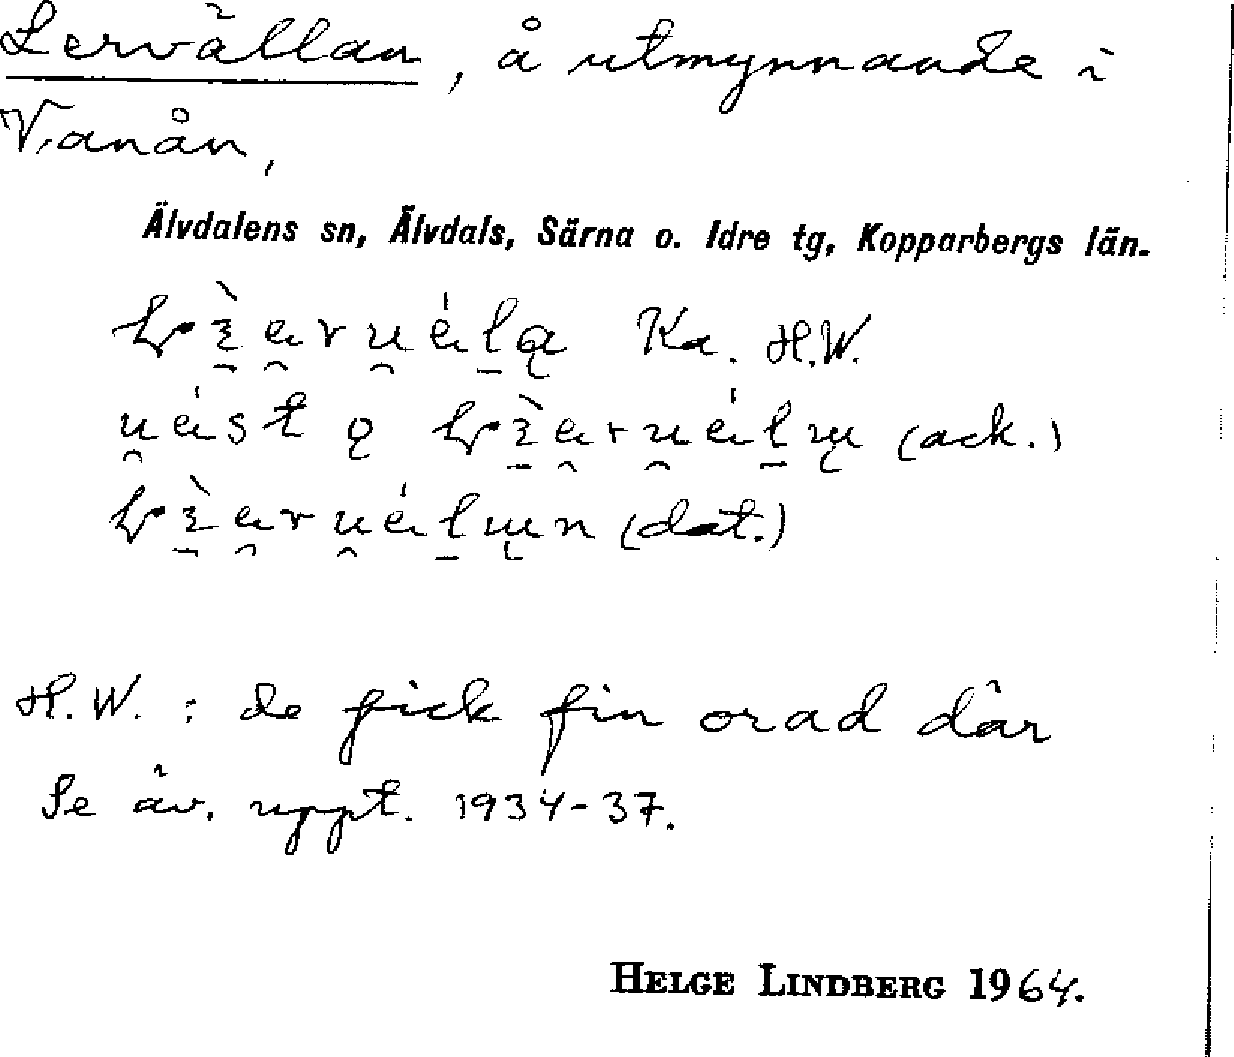 Lervällan, å utmynnande i
Vanån,
Älvdalens sn, Älvdals, Särna o. Idre tg, Kopparbergs län.
Ka. H.W.
(ack.)
(dat.)
H.W. : de fick fin orad där
Se äv. uppt. 1934-37.
HELGE LINDBERG 1964.